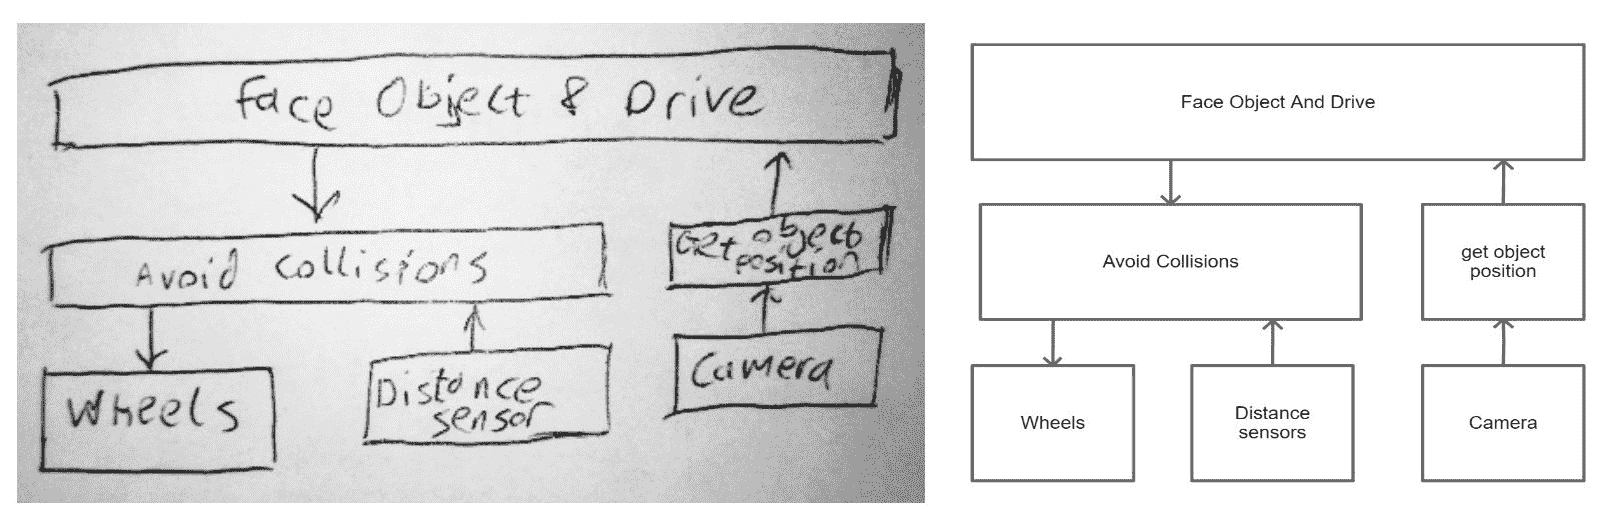 Face Object & Drive
Avoid Collisions
Get object
position
Wheels
Distance
sensor
Camera
Face Object And Drive
Avoid Collisions
get object
position
Wheels
Distance
sensors
Camera